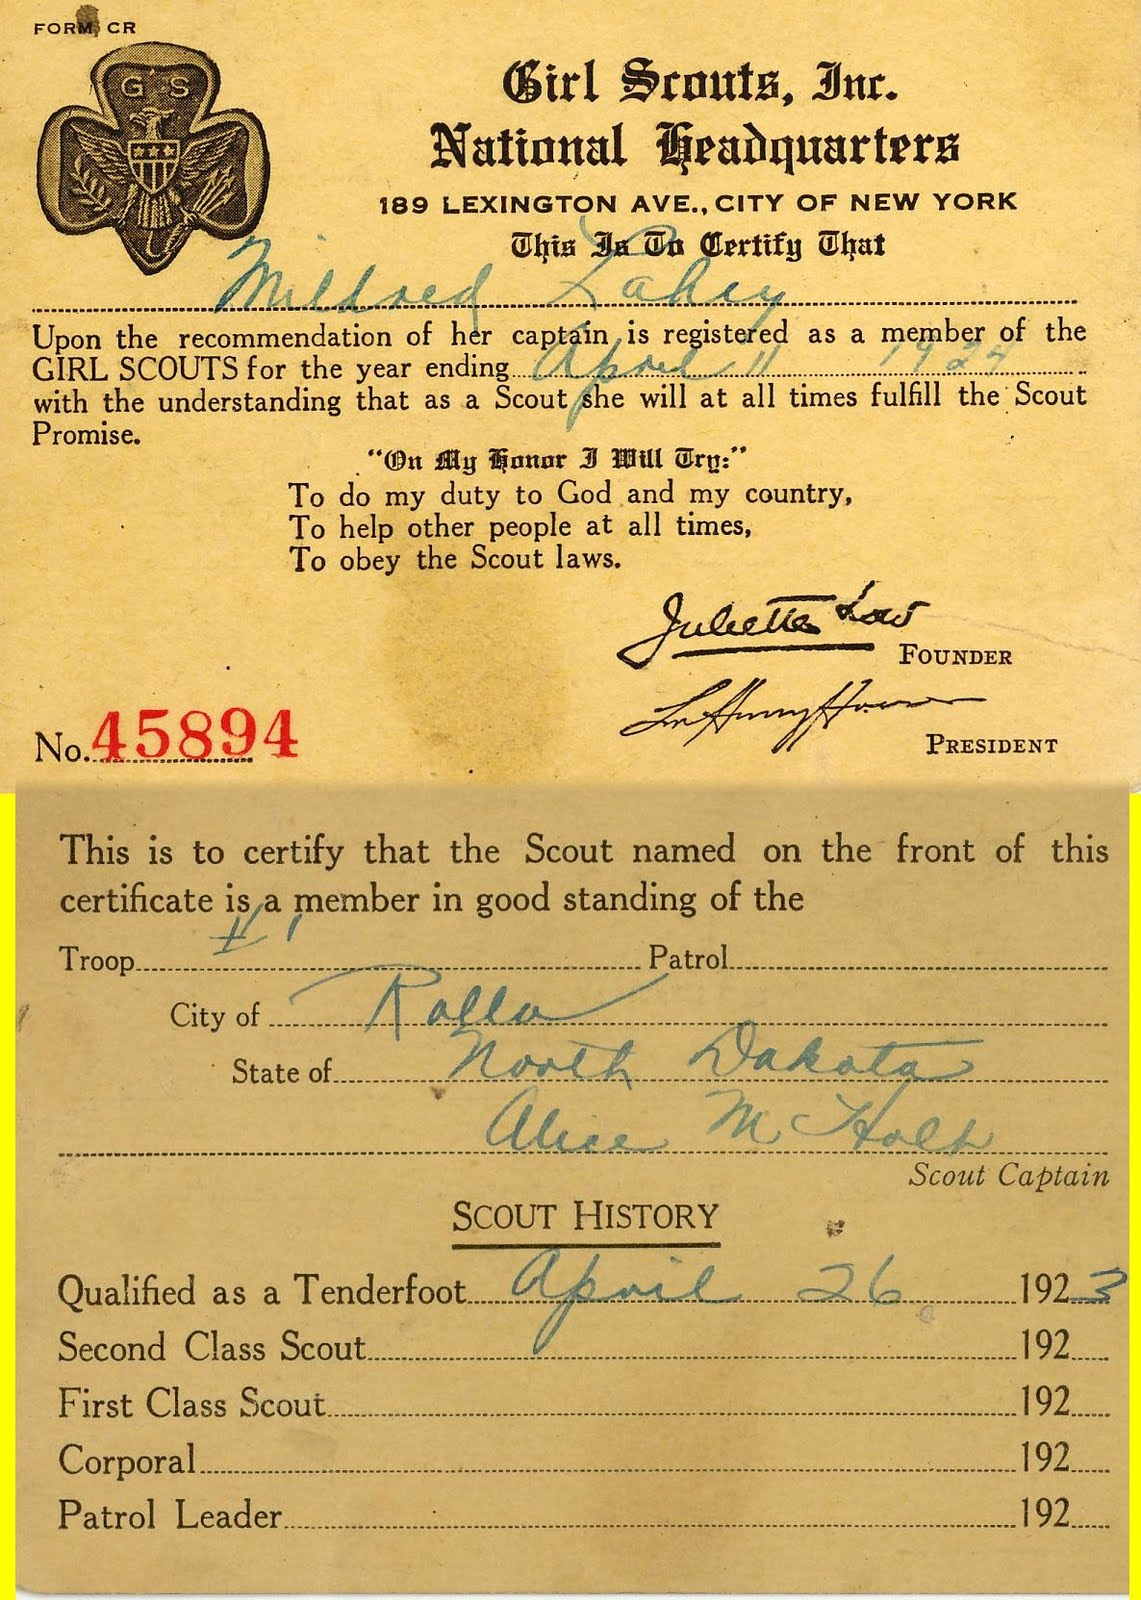 FORM CR
G S
Girl Scouts, Inc.
National Headquarters
189 LEXINGTON AVE., CITY OF NEW YORK
This Is To Certify That
Mildred Lahey
Upon the recommendation of her captain is registered as a member of the
GIRL SCOUTS for the year ending April 11 1924
with the understanding that as a Scout she will at all times fulfill the Scout
Promise.
"On My Honor I Will Try:"
To do my duty to God and my country,
To help other people at all times,
To obey the Scout laws.
Juliette Low
FOUNDER
PRESIDENT
No. 45894
This is to certify that the Scout named on the front of this
certificate is a member in good standing of the
Troop Patrol
City of Rolla
State of North Dakota
Alice M Holt
Scout Captain
SCOUT HISTORY
Qualified as a Tenderfoot April 26 1923
Second Class Scout 192
First Class Scout 192
Corporal 192
Patrol Leader 192